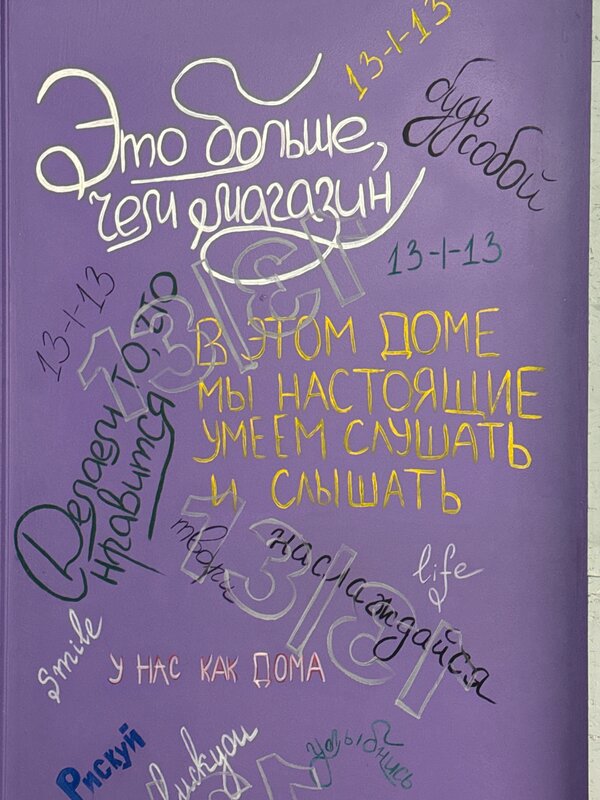 13-1-13
Это больше,
чем магазин
будь
собой
13-1-13
13-1-13
13|13|
В ЭТОМ ДОМЕ
МЫ НАСТОЯЩИЕ
УМЕЕМ СЛУШАТЬ
И СЛЫШАТЬ
Делаем то, что
нравится
13|13|
твори
наслаждайся
life
Smile
У НАС КАК ДОМА
Рискуй
luckyou
улыбнись